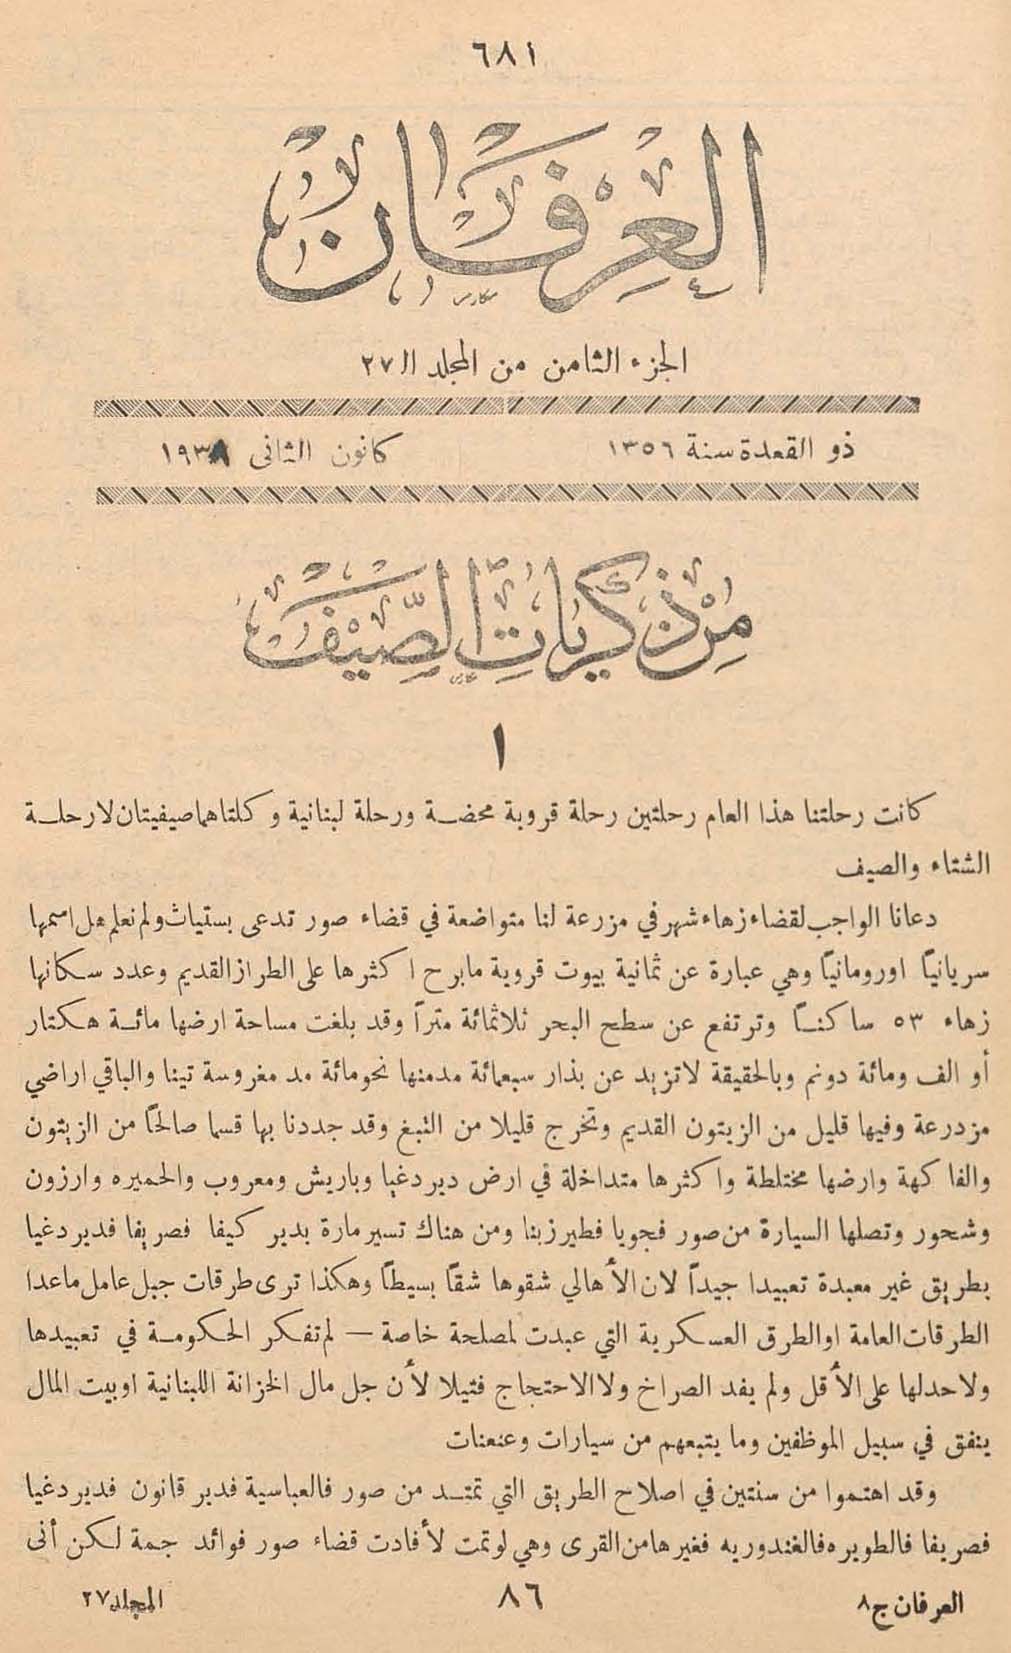 ٦٨١
العرفان
الجزء الثامن من المجلد الـ ٢٧
ذو القعدة سنة ١٣٥٦ كانون الثاني ١٩٣٨
مِنْ ذكرياتِ الصَّيف
١
كانت رحلتنا هذا العام رحلتين رحلة قروية محضة ورحلة لبنانية وكلتاهما صيفيتان لا رحلة
الشتاء والصيف
دعانا الواجب لقضاء زهاء شهر في مزرعة لنا متواضعة في قضاء صور تدعى بستيات ولم نعلم هل اسمها
سريانيًا او رومانيًا وهي عبارة عن ثمانية بيوت قروية مابرح اكثرها على الطراز القديم وعدد سكانها
زهاء ٥٣ ساكنًا وترتفع عن سطح البحر ثلاثمائة مترًا وقد بلغت مساحة ارضها مائة هكتار
أو الف ومائة دونم وبالحقيقة لا تزيد عن بذار سبعمائة مد منها نحو مائة مد مغروسة تينا والباقي اراضي
مزدرعة وفيها قليل من الزيتون القديم وتخرج قليلا من التبغ وقد جددنا بها قسما صالحًا من الزيتون
والفاكهة وارضها مختلطة واكثرها متداخلة في ارض ديردغيا وباريش ومعروب والحميره وارزون
وشحور وتصلها السيارة من صور فجويا فطيرزبنا ومن هناك تسير مارة بدير كيفا فصريفا فديردغيا
بطريق غير معبدة تعبيدا جيدًا لان الأهالي شقوها شقًا بسيطًا وهكذا ترى طرقات جبل عامل ماعدا
الطرقات العامة او الطرق العسكرية التي عبدت لمصلحة خاصة — لم تفكر الحكومة في تعبيدها
ولا حدلها على الأقل ولم يفد الصراخ ولا الاحتجاج فتيلا لأن جل مال الخزانة اللبنانية او بيت المال
ينفق في سبيل الموظفين وما يتبعهم من سيارات وعنعنات
وقد اهتموا من سنتين في اصلاح الطريق التي تمتد من صور فالعباسية فدير قانون فديردغيا
فصريفا فالطويره فالغندوريه فغيرها من القرى وهي لو تمت لأفادت قضاء صور فوائد جمة لكن أنى
العرفان ج٨ ٨٦ المجلد ٢٧